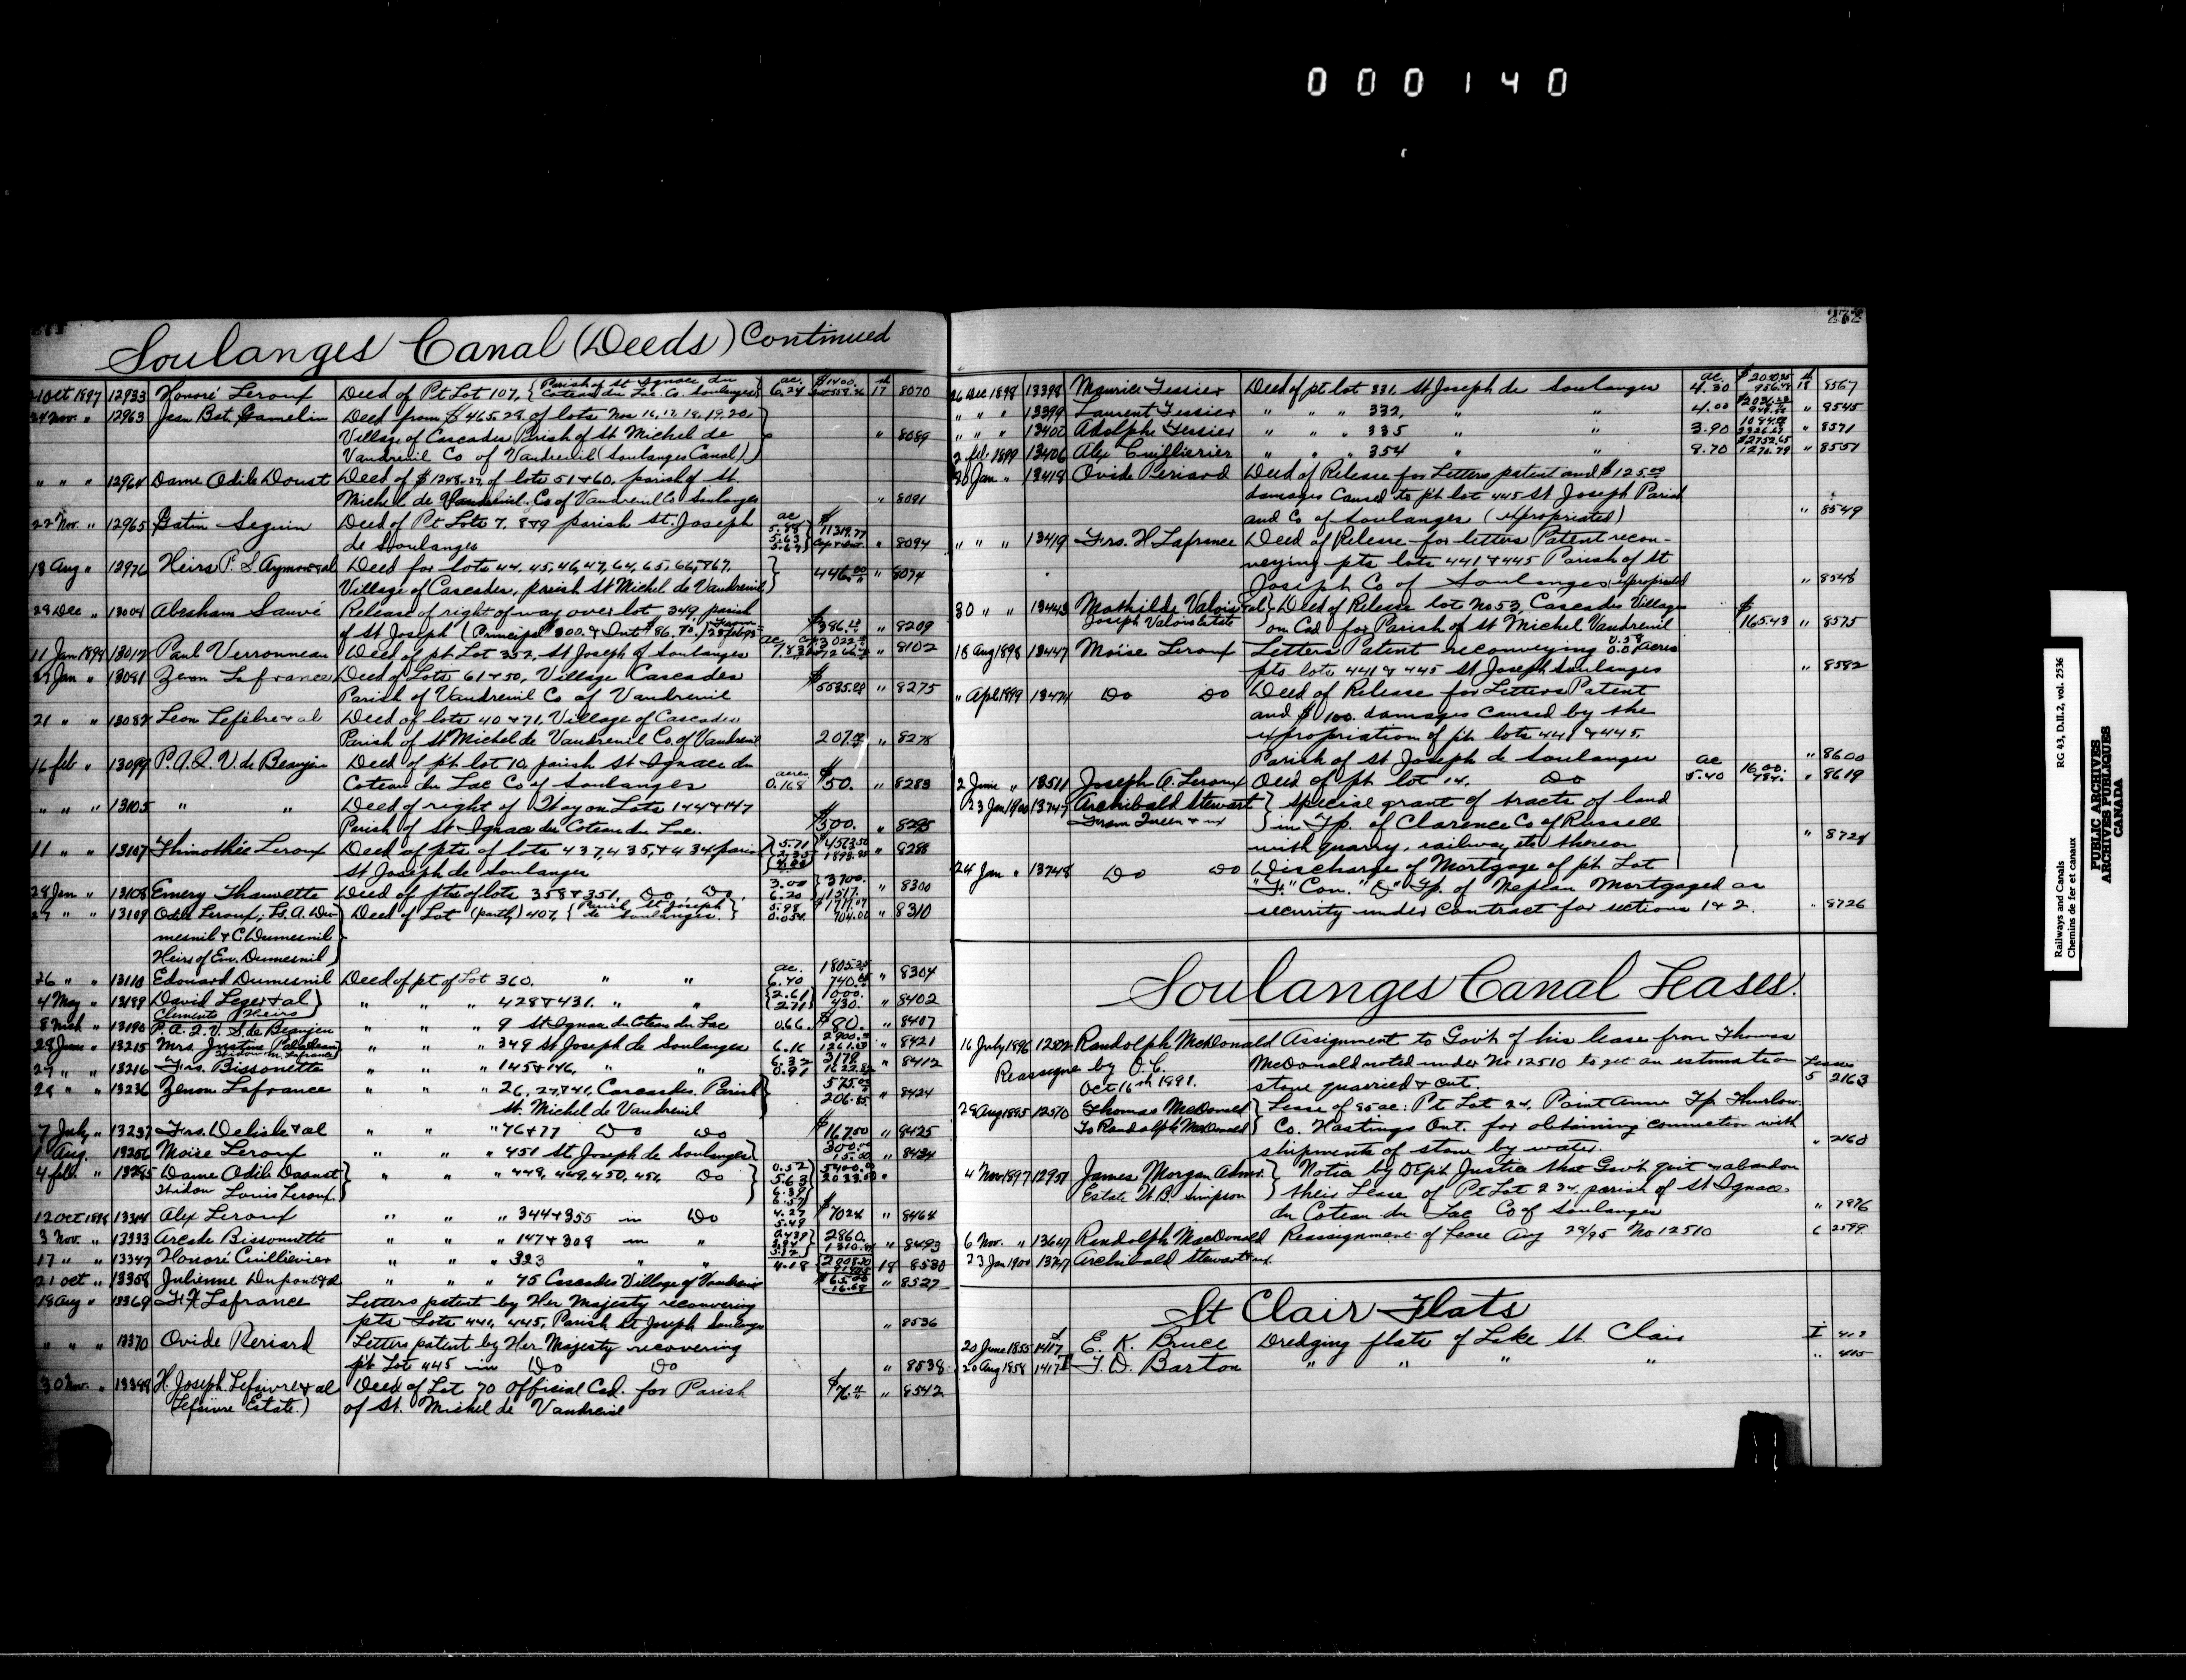 000140
272
Soulanges Canal (Deeds) Continued
21 Oct 1897 12933 Honoré Leroux Deed of Pt Lot 107, { Parish of St Ignace du Coteau du Lac Co. Soulanges } ac. 6.24 $1400. 17 8070
24 Nov. " 12963 Jean Bat. Gamelin Deed from $465.28 of lots Nos 16, 17, 18, 19, 20,
Village of Cascades Parish of St Michel de " 8089
Vaudreuil Co of Vaudreuil (Soulanges Canal)
" " " 12964 Dame Odile Doust Deed of $1248.27 of lots 51 & 60, parish of St.
Michel de Vaudreuil, Co of Vaudreuil Co Soulanges " 8091
22 Nov. " 12965 Gatien Seguin Deed of Pt Lots 7, 8 & 9 parish St. Joseph ac 5.88 5.63 5.67 $11319.77
de Soulanges " 8094
18 Aug " 12976 Heirs P. S. Aymong & al Deed for lots 44, 45, 46, 47, 64, 65, 66, & 67, 446.00 " 8074
Village of Cascades, parish St Michel de Vaudreuil
29 Dec " 13004 Abraham Sauvé Release of right of way over lot 349, parish
of St Joseph (Principal $300. & Int $86.70, $386. " 8209
11 Jan 1898 13012 Paul Verronneau Deed of pt Lot 352, St Joseph of Soulanges 7.83 " 8102
29 Jan " 13081 Zenon Lafrance Deed of Lots 61 & 50, Village Cascades
Parish of Vaudreuil Co of Vaudreuil $5535.28 " 8275
21 " " 13087 Leon Lefebre & al Deed of lots 40 & 71, Village of Cascades
Parish of St Michel de Vaudreuil Co. of Vaudreuil 207. " 8278
16 feb " 13099 P. A. Q. V. de Beaujeu Deed of pt lot 10, parish St Ignace du
Coteau du Lac Co of Soulanges acres 0.168 $50. " 8283
" " " 13105 " " Deed of right of Way on Lots 144 & 147
Parish of St Ignace du Coteau du Lac. $500. " 8295
11 " " 13107 Thimothée Leroux Deed of pts of lots 437, 435, & 434 parish 5.71 4573.50 " 8288
St Joseph de Soulanges
28 Jan " 13108 Emery Thauvette Deed of pts of lots 358 & 351, Do Do 3.00 6.20 3700. 1517. " 8300
27 " " 13109 Odile Leroux, Ls. A. Du- Deed of Lot (partly) 407, { Parish St. Joseph de Soulanges. } 5.98 0.054 704.00 " 8310
mesnil & C Dumesnil
Heirs of Em. Dumesnil
26 " " 13110 Edouard Dumesnil Deed of pt of Lot 360, " " ac. 6.40 1805.25 740. " 8304
4 May " 13189 David Leger & al " " " 428 & 431, " " 2.61 2.71 1000. 430. " 8402
Clements Heirs
8 Mch " 13190 P. A. Q. V. S. de Beaujeu " " " 9 St Ignace du Coteau du Lac 0.66. $80. " 8407
28 June " 13215 Mrs. Justine " " " 349 St Joseph de Soulanges 6.16 2900. 1261. " 8421
27 " " 13216 Frs. Bissonette " " " 145 & 146, " " 6.32 3179 " 8412
28 " " 13236 Zenon Lafrance " " " 26, 27 & 41, Cascades, Parish 575.00 206.85 " 8424
St. Michel de Vaudreuil
7 July " 13237 Frs. Delisle & al " " " 76 & 77 Do Do $167.50 " 8425
1 Aug. 13256 Moise Leroux " " " 451 St. Joseph de Soulanges 300.00 15.00 " 8434
4 feb. " 13285 Dame Odile Daoust " " " 448, 449, 450, 451, Do 0.52 5.63 5400. "
Widow Louis Leroux
12 Oct 1898 13304 Alex Leroux " " " 344 & 355 in Do 4.27 5.49 $7024 " 8464
3 Nov. " 13333 Arcade Bissonnette " " " 147 & 308 in " 2860. " 8493
17 " " 13347 Honoré Cuillierier " " " 323 " " 4.18 18 8530
21 Oct " 13358 Julienne Dupont & al " " " 75 Cascades Village of Vaudreuil $65.00 16.68 " 8527
18 Aug " 13369 F. X Lafrance Letters patent by Her Majesty reconvering
pts Lots 441, 445, Parish St. Joseph Soulanges " 8536
" " " 13370 Ovide Reriard Letters patent by Her Majesty recovering
pt Lot 445 in Do Do " 8538
30 Nov. " 13388 H. Joseph Lefaivre & al Deed of Lot 70 Official Cad. for Parish $76. " 8542
(Lefaivre Estate.) of St. Michel de Vaudreuil
26 Dec 1898 13398 Maurice Tessier Deed of pt lot 331, St Joseph de Soulanges ac. 4.30 18 8567
" " " 13399 Laurent Tessier " " " 332, " " 4.00 " 8545
" " " 13400 Adolphe Tessier " " " 335 " " 3.90 " 8571
2 feb 1899 13406 Alex Cuillierier " " " 354 " " 8.70 $2752.65 1276.79 " 8551
30 Jan " 13418 Ovide Periard Deed of Release for Letters patent and $125.00
damages Caused to pt lot 445 St Joseph Parish
and Co of Soulanges (expropriated) " 8549
" " " 13419 Frs. X. Lafrance Deed of Release for letters Patent recon-
veying pts lots 441 & 445 Parish of St
Joseph Co of Soulanges (expropriated " 8548
30 " " 13443 Mathilde Valois & al } Deed of Release lot No 53, Cascades Village
Joseph Valois Estate on Cad for Parish of St Michel Vaudreuil $165.43 " 8575
18 Aug 1898 13447 Moise Leroux Letters Patent reconveying acres
pts lots 441 & 445 St Joseph Soulanges " 8582
" Apl 1899 13474 Do Do Deed of Release for Letters Patent
and $100. damages caused by the
expropriation of pt lots 441 & 445
Parish of St Joseph de Soulanges " 8600
2 June " 13511 Joseph A. Leroux Deed of pt lot 14. Do ac 5.40 1600. 784. " 8619
23 Jan 1900 13747 Archibald Stewart } Special grant of tracts of land
From Queen & ux } in Tp. of Clarence Co of Russell
with quarry, railway, etc thereon " 8724
24 Jan " 13748 Do Do Discharge of Mortgage of pt Lot
"F." Con. "D" Tp. of Nepean Mortgaged as
security under Contract for sections 1 & 2. " 8726
Soulanges Canal Leases.
16 July 1896 12502 Randolph McDonald Assignment to Gov't of his lease from Thomas
Reassigne by O.C. McDonald noted under No 12510 to get an estimate on Leases
Oct 16th 1891. stone quarried & cut. 5 2163
29 Aug 1895 12510 Thomas McDonald } Lease of 85 ac: Pt Lot 24, Point Anne Tp. Thurlow
To Randolph McDonald } Co. Hastings Ont. for obtaining connection with
shipments of stone by water. " 2160
4 Nov 1897 12951 James Morgan Admr. } Notice by Dept Justice that Gov't quit & abandon
Estate W. B. Simpson } their Lease of Pt Lot 234, parish of St Ignace
du Coteau du Lac Co of Soulanges " 7876
6 Nov. " 13617 Randolph MacDonald Reassignment of Lease Aug 29/95 No 12510 6 2599
23 Jan 1900 13747 Archibald Stewart & ux.
St Clair Flats
20 June 1855 1417 E. K. Bruce Dredging flats of Lake St. Clair I 412
20 Aug 1858 1417 F. D. Barton " " " " " 415
Railways and Canals RG 43, D.II.2, vol. 2536
Chemins de fer et canaux
PUBLIC ARCHIVES
ARCHIVES PUBLIQUES
CANADA